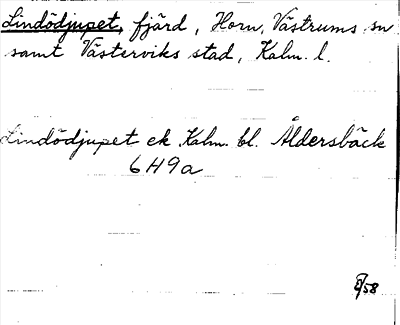 Lindödjupet, fjärd, Horn, Västrums sn
samt Västerviks stad, Kalm. l.
Lindödjupet ek Kalm. bl. Åldersbäck
6H9a
/58